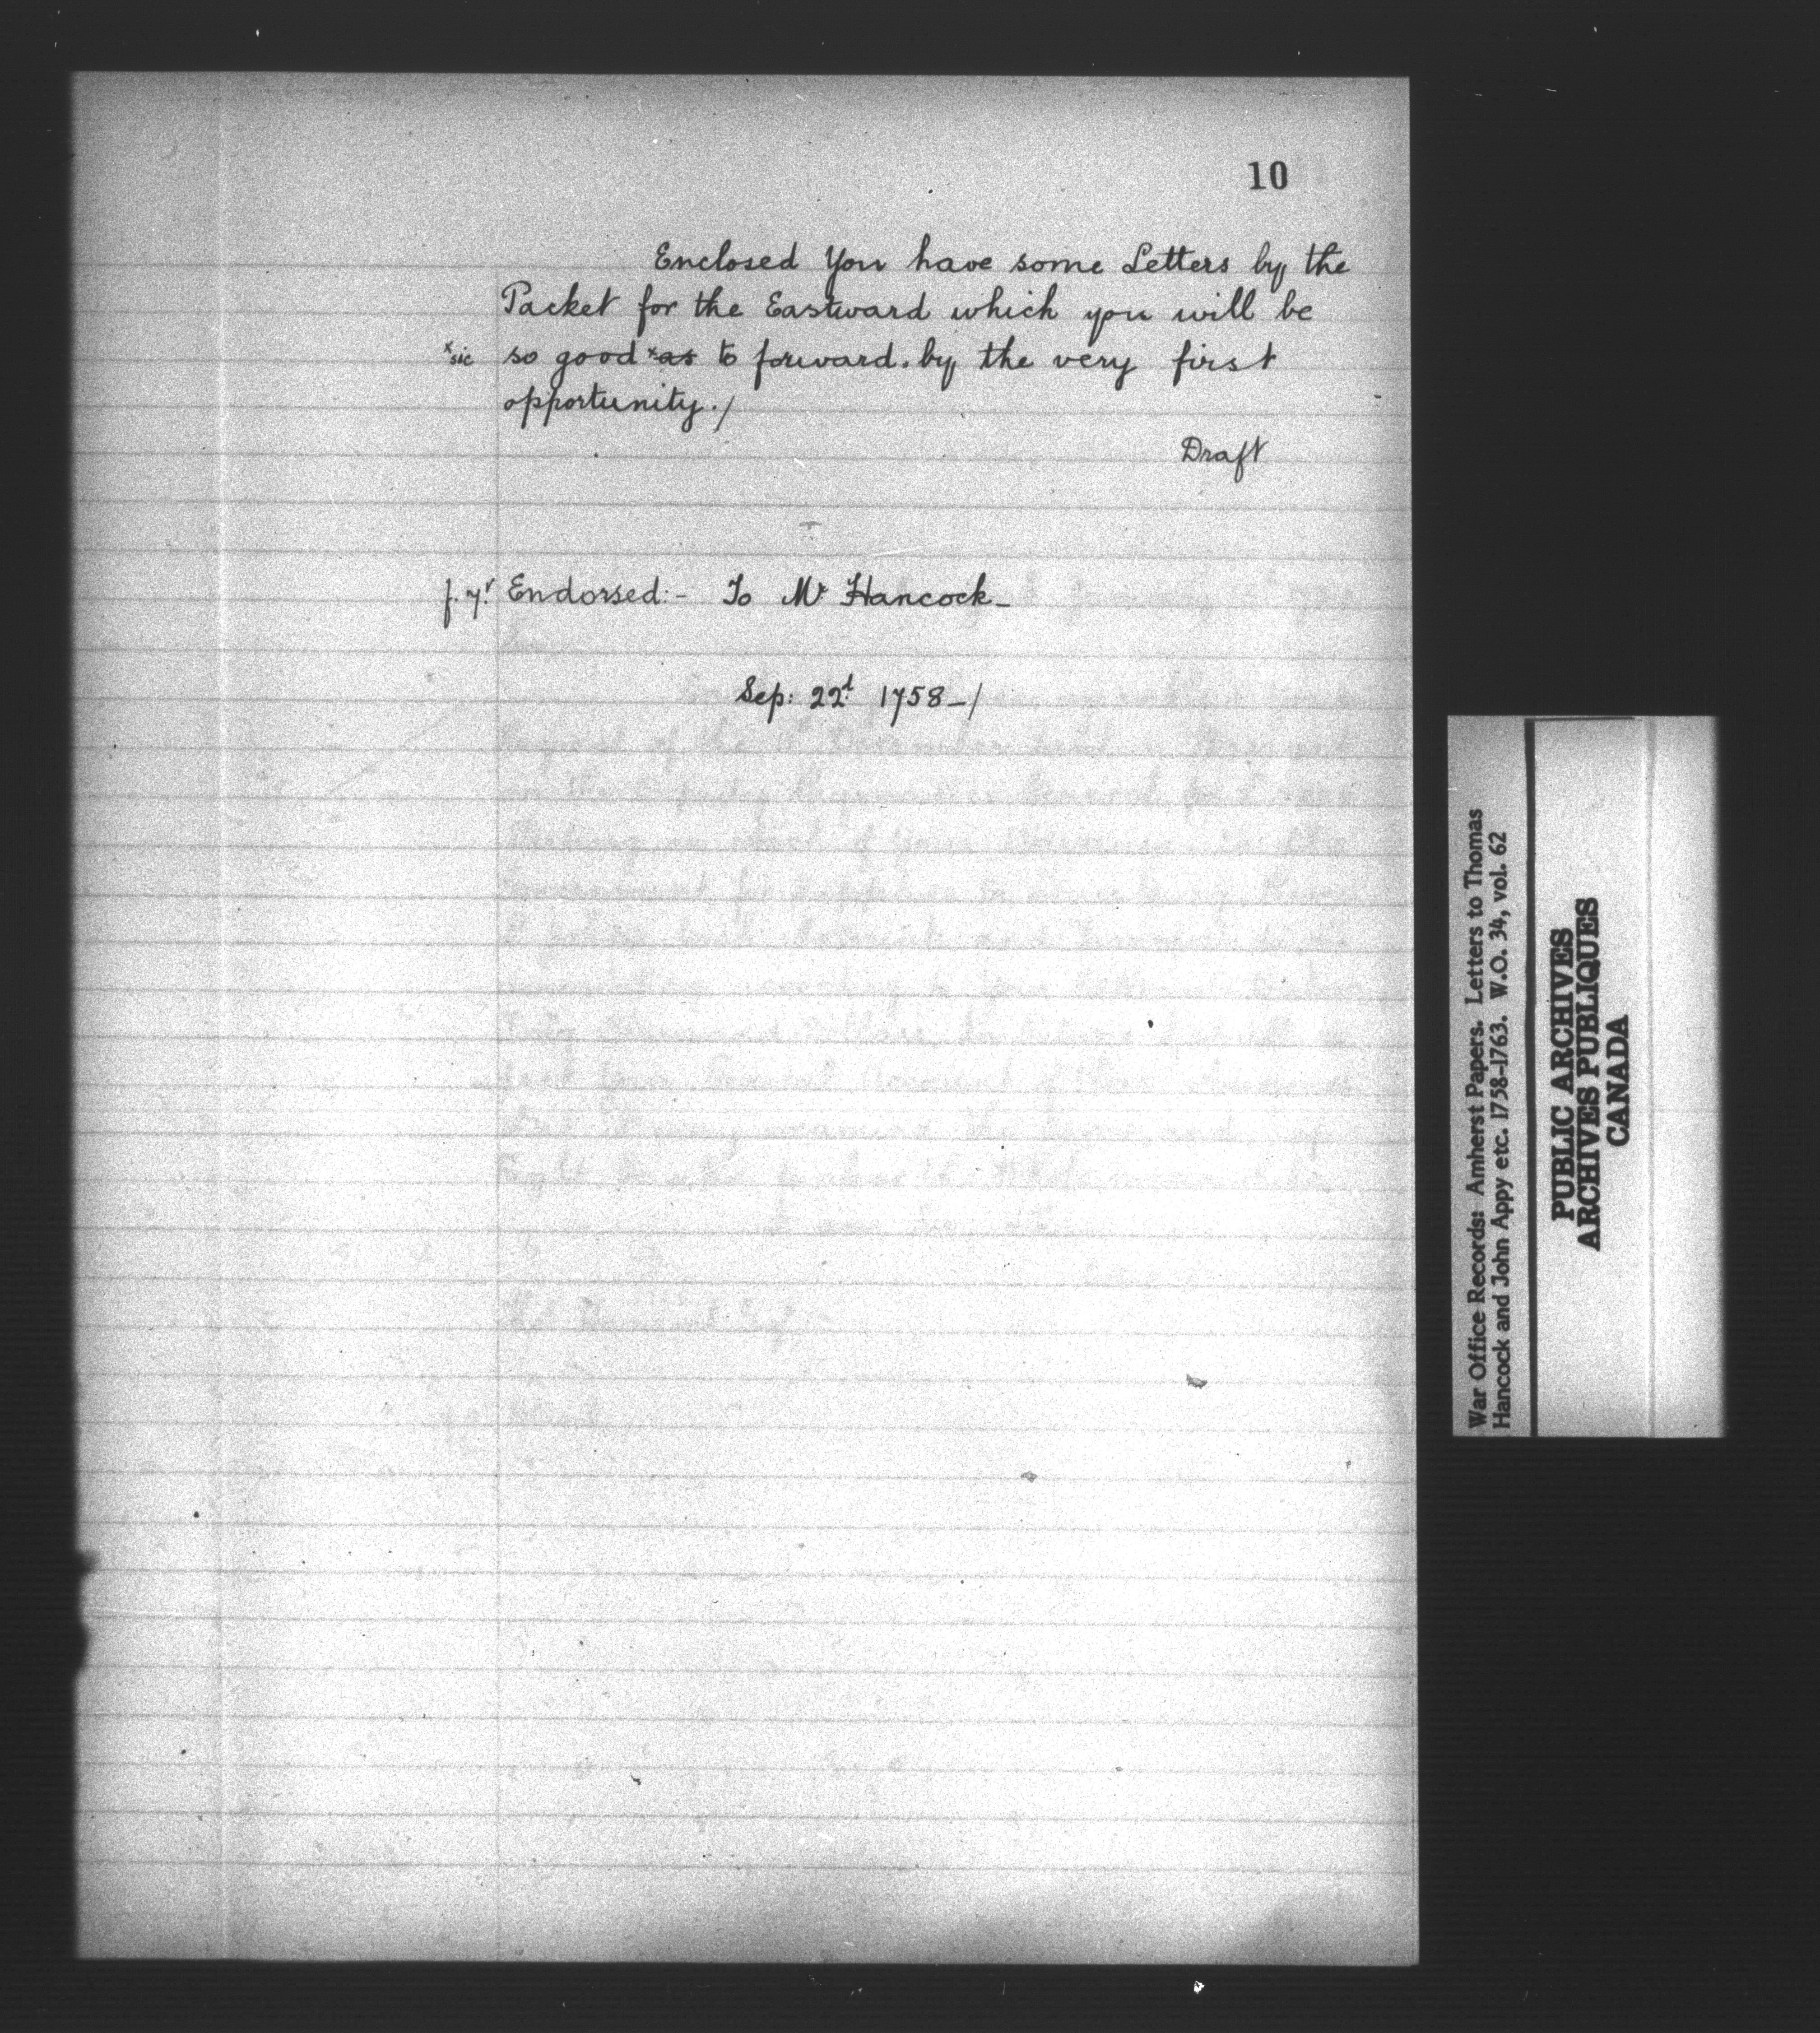 10
Enclosed You have some Letters by the
Packet for the Eastward which you will be
*sic so good *as to forward. by the very first
opportunity./
Draft
f. 7.v Endorsed:- To Mr Hancock-
Sep: 22d 1758-/
War Office Records: Amherst Papers. Letters to Thomas
Hancock and John Appy etc. 1758-1763. W.O. 34, vol. 62
PUBLIC ARCHIVES
ARCHIVES PUBLIQUES
CANADA